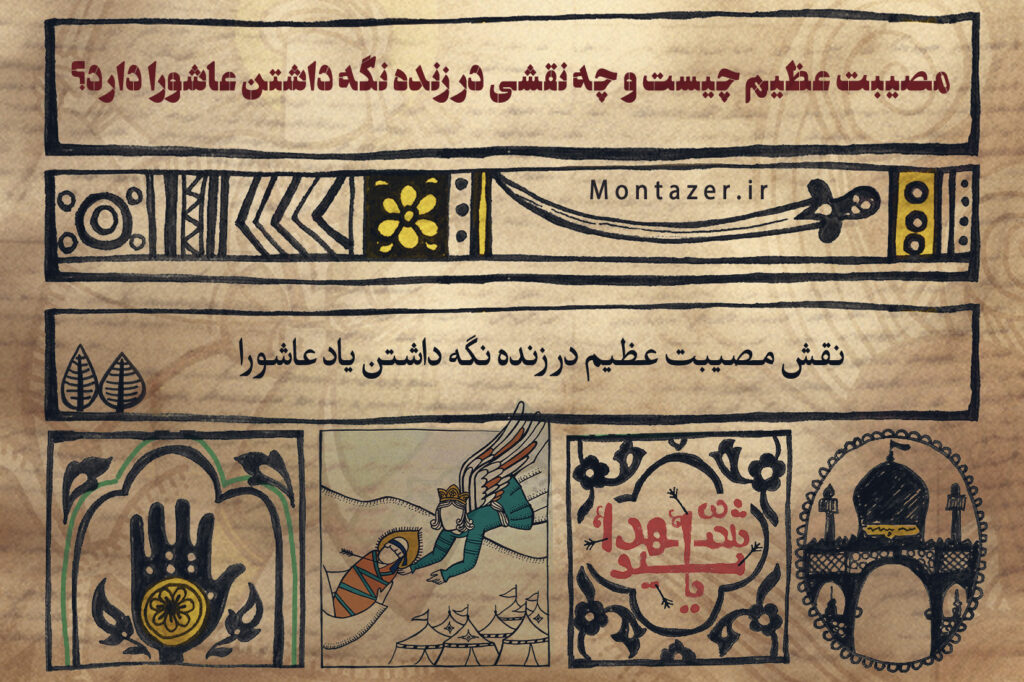 مصیبت عظیم چیست و چه نقشی در زنده نگه داشتن عاشورا دارد؟
Montazer.ir
نقش مصیبت عظیم در زنده نگه داشتن یاد عاشورا
یا سید